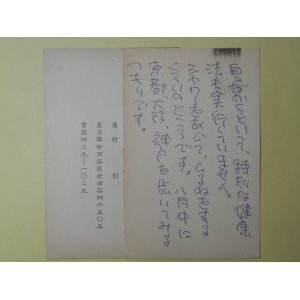 法は実行していません。
シャワーをあびて、ひるねをする
くらいのところです。八月中に
京都、大阪、神戸を歩いてみる
つもりです。
菊村 到
東京都世田谷区世田谷四の五〇五
電話四二九―一〇二九